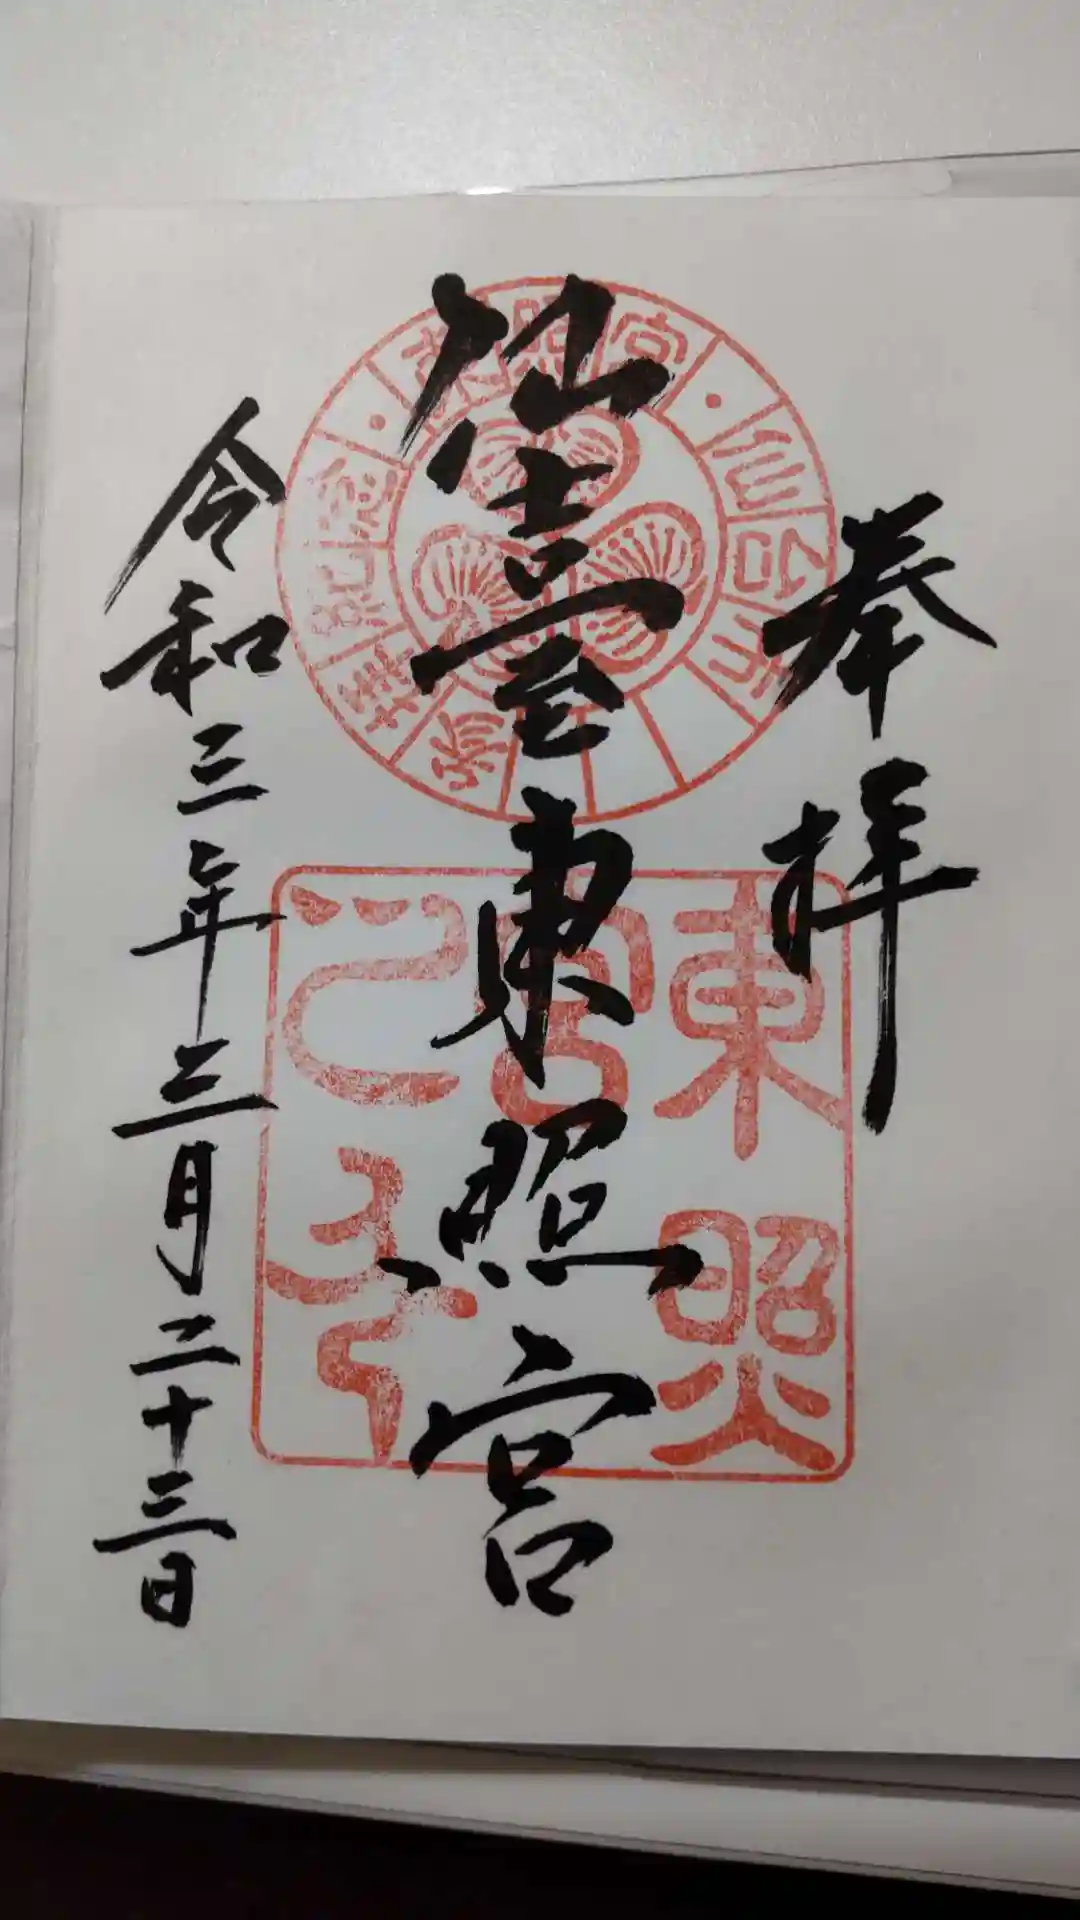 奉拝
仙臺東照宮
令和三年三月二十三日
東照宮
仙台市
東照
宮